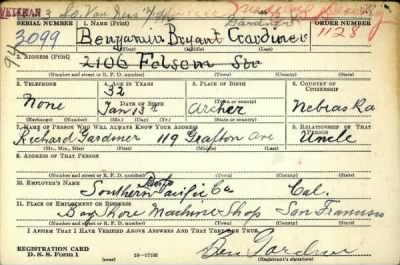 VETERAN
SERIAL NUMBER 1. NAME (Print) ORDER NUMBER
3099 Benjamin Bryant Gardiner 1128
(First) (Middle) (Last)
3. ADDRESS (Print)
2106 Folsom Str
(Number and street or R. F. D. number) (Town) (County) (State)
2. TELEPHONE 4. AGE IN YEARS 5. PLACE OF BIRTH 6. COUNTRY OF CITIZENSHIP
32
None DATE OF BIRTH Archer
Jan 13th (Town or county) Nebraska
(Exchange) (Number) (Mo.) (Day) (Yr.) (State or country)
7. NAME OF PERSON WHO WILL ALWAYS KNOW YOUR ADDRESS 8. RELATIONSHIP OF THAT PERSON
Richard Gardiner 119 Grafton Ave Uncle
(Mr., Mrs., Miss) (First) (Middle) (Last)
9. ADDRESS OF THAT PERSON
(Number and street or R. F. D. number) (Town) (County) (State)
10. EMPLOYER'S NAME
Southern Pacific Co Cal.
11. PLACE OF EMPLOYMENT OR BUSINESS
Bay Shore Machine Shop San Francisco
(Number and street or R. F. D. number) (Town) (County) (State)
I AFFIRM THAT I HAVE VERIFIED ABOVE ANSWERS AND THAT THEY ARE TRUE.
REGISTRATION CARD
D. S. S. Form 1 16—17105 Ben Gardiner
(Registrant's signature)